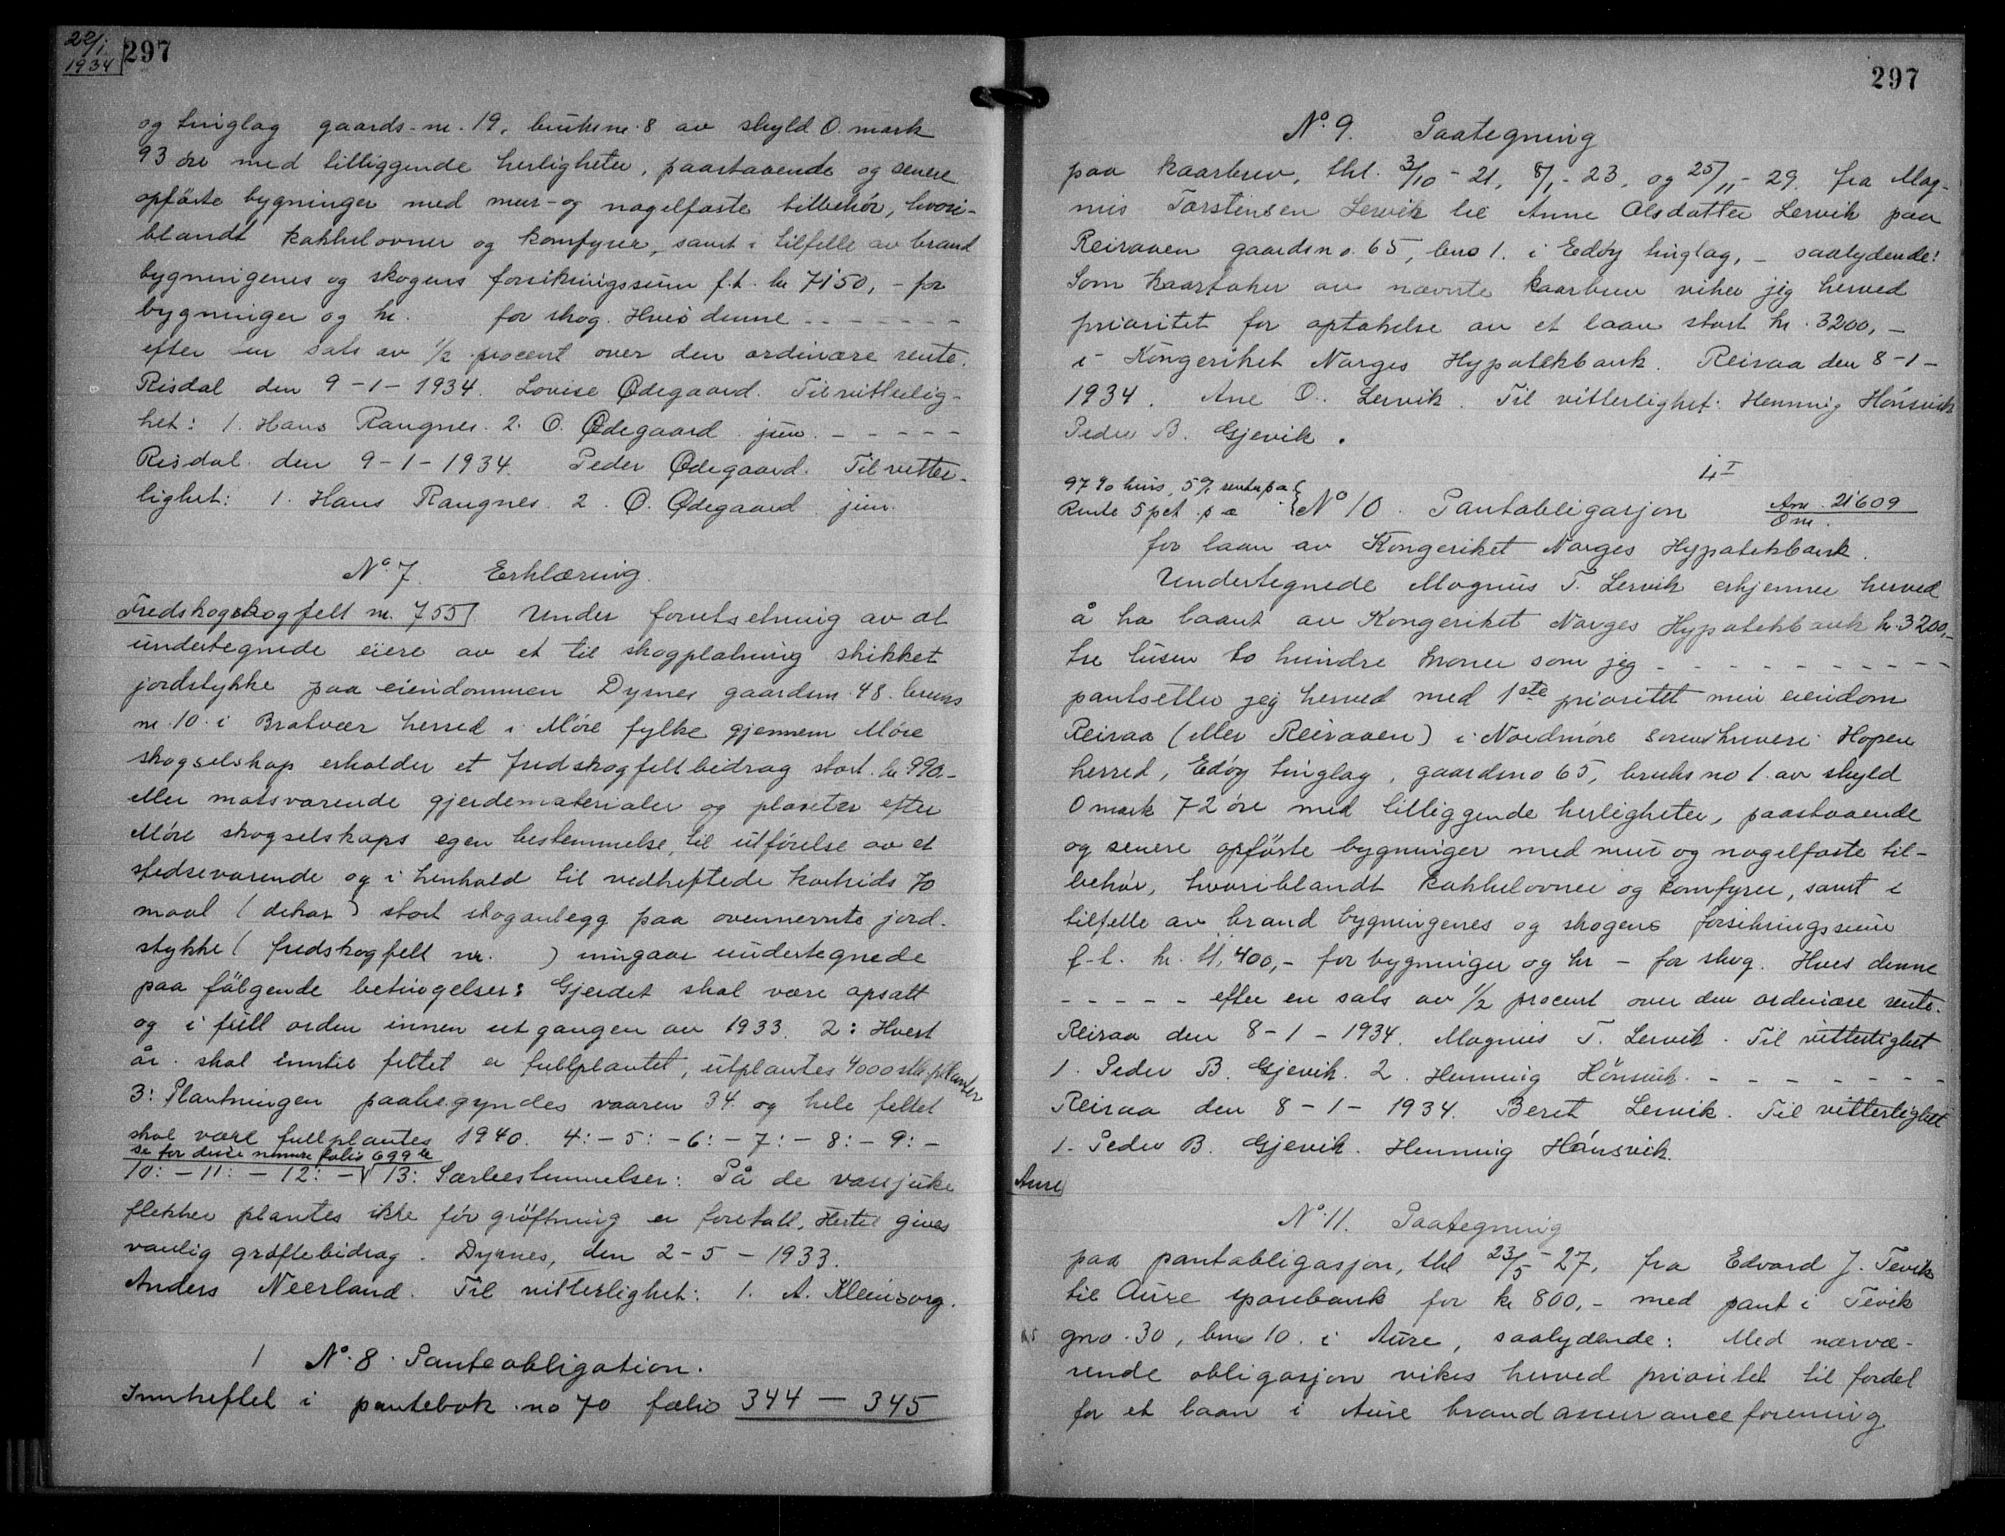 20/1
1934
297
og tinglag gaards-nr. 19, bruksnr. 8 av skyld 0. mark
93 öre med tilliggende herligheter, paastaaende og senere
opförte bygninger med mur- og nagelfaste tilbehör, hvori-
blandt kakkelovner og komfyrer, samt i tilfelle av brand
bygningenes og skogens forsikringssum f.t. kr 7150,- for
bygninger og kr. for skog. Hvis denne - - - - - - -
efter en sats av 1/2 procent over den ordinære rente.
Risdal den 9-1-1934. Lovise Ødegaard. Til vitterlig-
het: 1. Hans Rangnes. 2. O. Ødegaard jun. - - - - -
Risdal den 9-1-1934. Peder Ødegaard. Til vitter-
lighet: 1. Hans Rangnes. 2. O. Ødegaard jun.
No. 7. Erklæring.
Fredskogskogfelt nr. 755. Under forutsetning av at
undertegnede eiere av et til skogplatning skikket
jordstykke paa eiendommen Dyrnes gaardsnr. 48. bruks
nr. 10. i Bratvær herred i Möre fylke gjennem Möre
skogselskap erholder et fredskogfeltbidrag stort kr 990-
eller motsvarende gjerdematerialer og planter efter
Möre skogselskaps egen bestemmelse, til utförelse av et
stedsevarende og i henhold til vedheftede kartrids 70
maal (dekar) stort skoganlegg paa ovennevnte jord-
stykke (fredskogfelt nr. ) inngaar undertegnede
paa fölgende betingelser: Gjerdet skal være opsatt
og i full orden innen utgangen av 1933. 2: Hvert
år skal inntil feltet er fullplantet, utplantes 4000 stk planter
3: Plantningen paabegyndes vaaren 34 og hele feltet
skal være fullplantes 1940. 4: - 5: - 6: - 7: - 8: - 9: -
se for disse numre folio 699 b
10: - 11: - 12: - 13: Særbestemmelser: På de vassjuke
flekker plantes ikke för gröftning er foretatt. Hertil gives
vanlig gröftebidrag. Dyrnes, den 2-5-1933.
Anders Neerland. Til vitterlighet: 1. A. Kleinsorg.
1 No. 8. Panteobligation.
Innheftet i pantebok no 70 folio 344 - 345
297
No. 9. Paategning
paa kaarbrev, thl. 3/10-21, 8/1-23, og 25/11-29. fra Mag-
nus Torstensen Lervik til Anne Olsdatter Lervik paa
Reiraaen gaardsno. 65, bno 1. i Edöy tinglag, - saalydende:
Som kaartaker av nævnte kaarbrev viker jeg herved
prioritet for optakelse av et laan stort kr. 3200,-
i Kongeriket Norges Hypotekbank. Reiraa den 8-1-
1934. Ane O. Lervik. Til vitterlighet: Henning Hönsvik
Peder B. Gjevik.
97 % kurs, 5 % rente pa
Rente 5 pct. p a { No 10. Pantobligasjon
Ann. 21609
for laan av Kongeriket Norges Hypotekbank.
Undertegnede Magnus T. Lervik erkjenner herved
å ha laant av Kongeriket Norges Hypotekbank kr. 3200,-
tre tusen to hundre kroner som jeg - - - - - - - - - -
pantsetter jeg herved med 1ste prioritet min eiendom
Reiraa (eller Reiraaen) i Nordmöre sorenskriveri Hopen
herred, Edöy tinglag, gaardsno 65, bruksno 1. av skyld
0 mark 72 öre med tilliggende herligheter, paastaaende
og senere opförte bygninger med mur og nagelfaste til-
behör, hvoriblandt kakkelovner og komfyrer, samt i
tilfelle av brand bygningenes og skogens forsikringssum
f.t. kr. 11,400,- for bygninger og kr - for skog. Hvis denne
- - - - - efter en sats av 1/2 procent over den ordinære rente.
Reiraa den 8-1-1934. Magnus T. Lervik. Til vitterlighet
1. Peder B. Gjevik. 2. Henning Hönsvik. - - - - - - -
Reiraa den 8-1-1934. Beret Lervik. Til vitterlighet
1. Peder B. Gjevik. Henning Hönsvik.
Aure
No. 11. Paategning
paa pantobligasjon, thl 23/5-27, fra Edvard J. Tevik
til Aure sparebank for kr 800,- med pant i Tevik
gno. 30, bno 10. i Aure, saalydende: Med nærvæ-
rende obligasjon vikes herved prioritet til fordel
for et laan i Aure brandassuranceforening